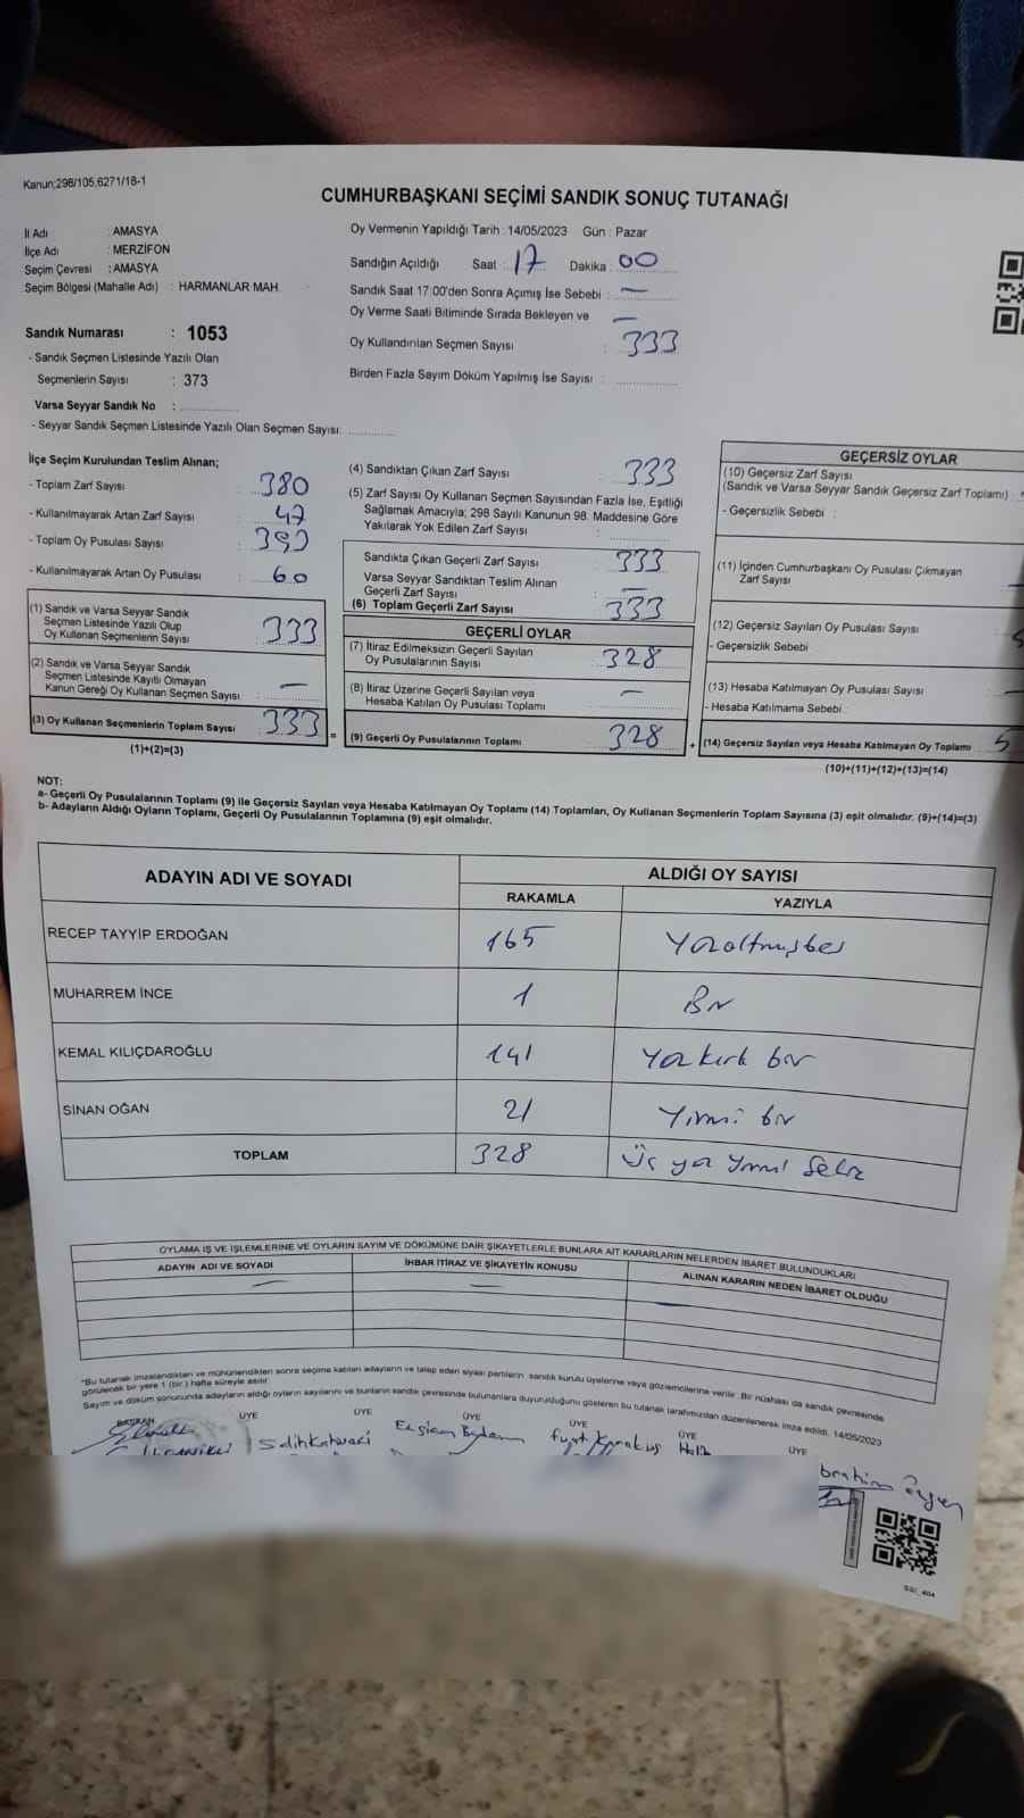 Kanun;298/105,6271/18-1
CUMHURBAŞKANI SEÇİMİ SANDIK SONUÇ TUTANAĞI
İl Adı : AMASYA
İlçe Adı : MERZİFON
Seçim Çevresi : AMASYA
Seçim Bölgesi (Mahalle Adı) : HARMANLAR MAH.
Sandık Numarası : 1053
- Sandık Seçmen Listesinde Yazılı Olan
Seçmenlerin Sayısı : 373
Varsa Seyyar Sandık No :
- Seyyar Sandık Seçmen Listesinde Yazılı Olan Seçmen Sayısı:
Oy Vermenin Yapıldığı Tarih : 14/05/2023 Gün : Pazar
Sandığın Açıldığı Saat : 17 Dakika : 00
Sandık Saat 17:00'den Sonra Açımış İse Sebebi : —
Oy Verme Saati Bitiminde Sırada Bekleyen ve —
Oy Kullandırılan Seçmen Sayısı : 333
Birden Fazla Sayım Döküm Yapılmış İse Sayısı :
İlçe Seçim Kurulundan Teslim Alınan;
- Toplam Zarf Sayısı : 380
- Kullanılmayarak Artan Zarf Sayısı : 47
- Toplam Oy Pusulası Sayısı : 393
- Kullanılmayarak Artan Oy Pusulası : 60
(1) Sandık ve Varsa Seyyar Sandık
Seçmen Listesinde Yazılı Olup
Oy Kullanan Seçmenlerin Sayısı : 333
(2) Sandık ve Varsa Seyyar Sandık
Seçmen Listesinde Kayıtlı Olmayan
Kanun Gereği Oy Kullanan Seçmen Sayısı : —
(3) Oy Kullanan Seçmenlerin Toplam Sayısı 333
(1)+(2)=(3)
(4) Sandıktan Çıkan Zarf Sayısı 333
(5) Zarf Sayısı Oy Kullanan Seçmen Sayısından Fazla İse, Eşitliği
Sağlamak Amacıyla; 298 Sayılı Kanunun 98. Maddesine Göre
Yakılarak Yok Edilen Zarf Sayısı :
Sandıkta Çıkan Geçerli Zarf Sayısı 333
Varsa Seyyar Sandıktan Teslim Alınan
Geçerli Zarf Sayısı : —
(6) Toplam Geçerli Zarf Sayısı 333
GEÇERLİ OYLAR
(7) İtiraz Edilmeksizin Geçerli Sayılan
Oy Pusulalarının Sayısı 328
(8) İtiraz Üzerine Geçerli Sayılan veya
Hesaba Katılan Oy Pusulası Toplamı —
= (9) Geçerli Oy Pusulalarının Toplamı 328
GEÇERSİZ OYLAR
(10) Geçersiz Zarf Sayısı
(Sandık ve Varsa Seyyar Sandık Geçersiz Zarf Toplamı)
- Geçersizlik Sebebi :
(11) İçinden Cumhurbaşkanı Oy Pusulası Çıkmayan
Zarf Sayısı
(12) Geçersiz Sayılan Oy Pusulası Sayısı 5
- Geçersizlik Sebebi
(13) Hesaba Katılmayan Oy Pusulası Sayısı —
- Hesaba Katılmama Sebebi
+ (14) Geçersiz Sayılan veya Hesaba Katılmayan Oy Toplamı 5
(10)+(11)+(12)+(13)=(14)
NOT:
a- Geçerli Oy Pusulalarının Toplamı (9) ile Geçersiz Sayılan veya Hesaba Katılmayan Oy Toplamı (14) Toplamları, Oy Kullanan Seçmenlerin Toplam Sayısına (3) eşit olmalıdır. (9)+(14)=(3)
b- Adayların Aldığı Oyların Toplamı, Geçerli Oy Pusulalarının Toplamına (9) eşit olmalıdır.
ADAYIN ADI VE SOYADI ALDIĞI OY SAYISI
RAKAMLA YAZIYLA
RECEP TAYYİP ERDOĞAN 165 Yüzaltmışbeş
MUHARREM İNCE 1 Bir
KEMAL KILIÇDAROĞLU 141 Yüz kırk bir
SİNAN OĞAN 21 Yirmi bir
TOPLAM 328 Üç yüz yirmi sekiz
OYLAMA İŞ VE İŞLEMLERİNE VE OYLARIN SAYIM VE DÖKÜMÜNE DAİR ŞİKAYETLERLE BUNLARA AİT KARARLARIN NELERDEN İBARET BULUNDUKLARI
ADAYIN ADI VE SOYADI İHBAR İTİRAZ VE ŞİKAYETİN KONUSU ALINAN KARARIN NEDEN İBARET OLDUĞU
*Bu tutanak imzalandıktan ve mühürlendikten sonra seçime katılan adayların ve talep eden siyasi partilerin sandık kurulu üyelerine veya gözlemcilerine verilir. Bir nüshası da sandık çevresinde
görülecek bir yere 1 (bir) hafta süreyle asılır.
Sayım ve döküm sonucunda adayların aldığı oyların sayılarını ve bunların sandık çevresinde bulunanlara duyurulduğunu gösteren bu tutanak tarafımızdan düzenlenerek imza edildi. 14/05/2023
BAŞKAN ÜYE ÜYE ÜYE ÜYE ÜYE ÜYE